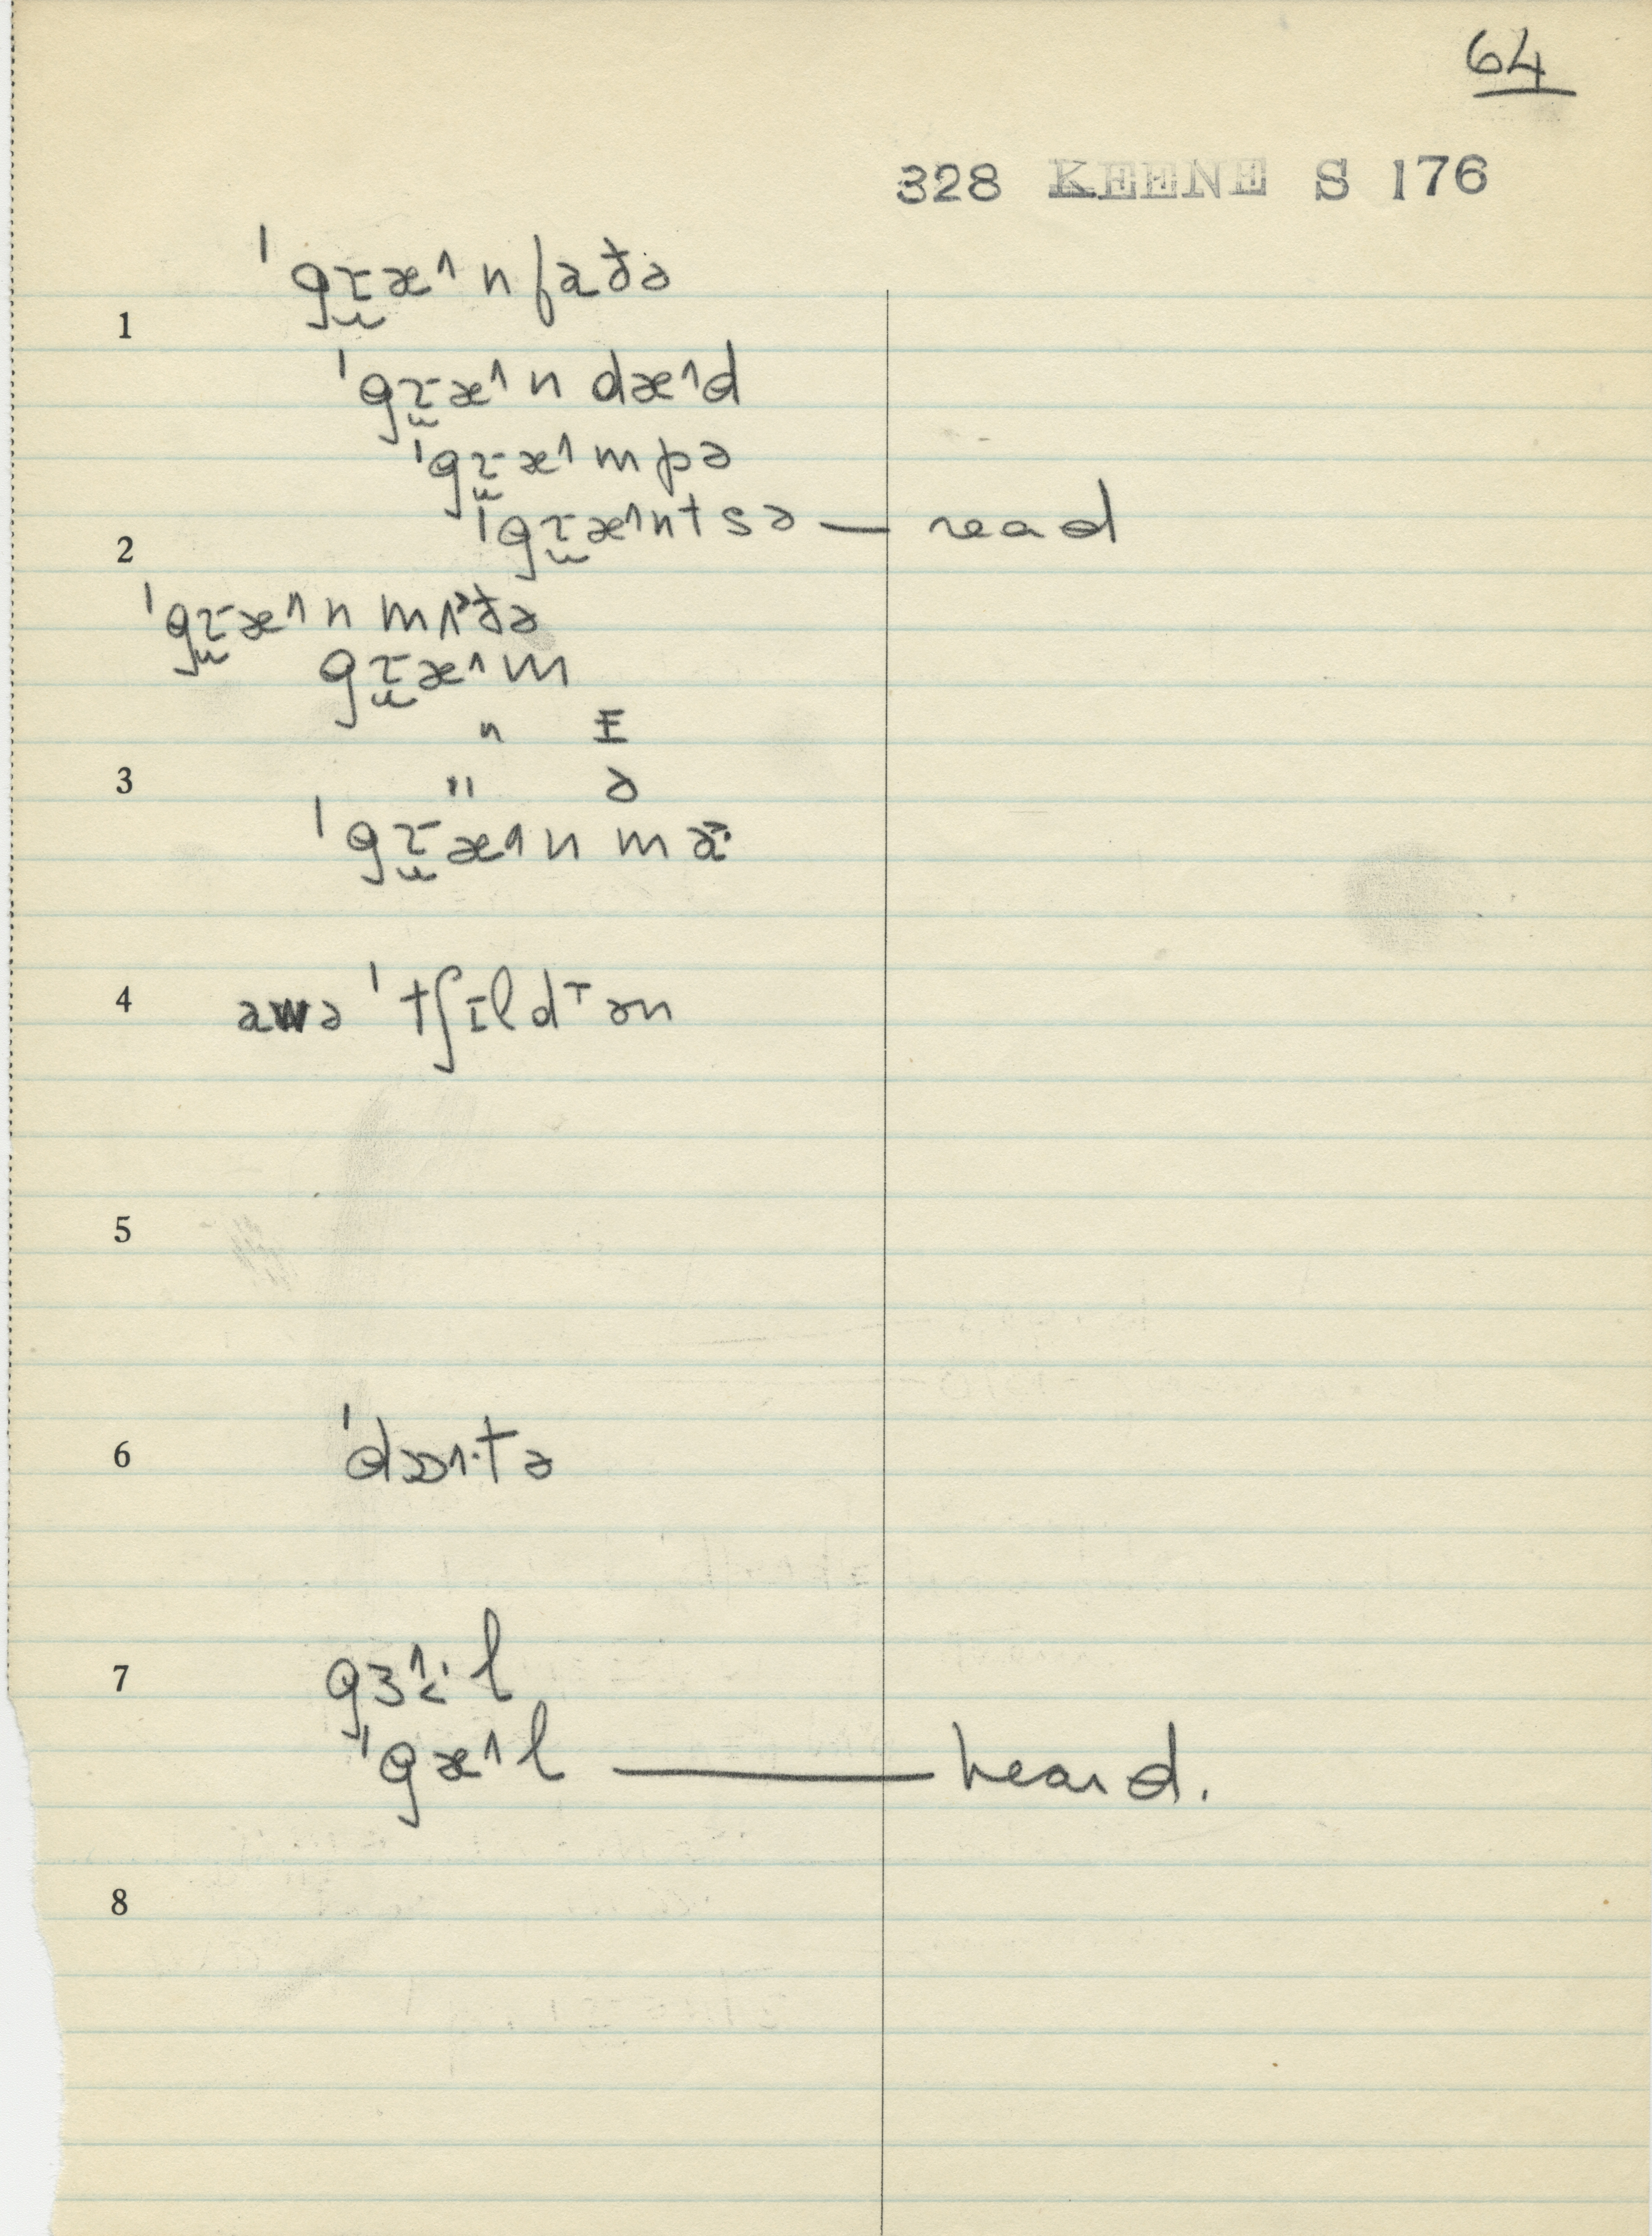 64
328 KEENE S 176
ˈgɹæ^nfaðə
1
ˈgɹæ^n dæ^d
ˈgɹæ^mpə
ˈgɹæ^ntsə — read
2
ˈgɹæ^n mʌðə
gɹæ^m
" I
3
" ə
ˈgɹæ^n ma:
4 awə ˈtʃɪldᵀən
5
6
7
ˈgæ^l — heard.
8